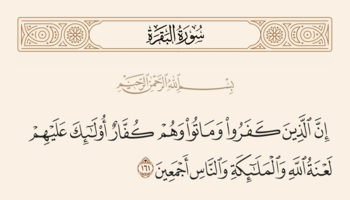 سُورَةُ البَقَرَةِ
بِسْمِ اللَّهِ الرَّحْمَٰنِ الرَّحِيمِ
إِنَّ ٱلَّذِينَ كَفَرُوا۟ وَمَاتُوا۟ وَهُمْ كُفَّارٌ أُو۟لَـٰٓئِكَ عَلَيْهِمْ
لَعْنَةُ ٱللَّهِ وَٱلْمَلَـٰٓئِكَةِ وَٱلنَّاسِ أَجْمَعِينَ ١٦١